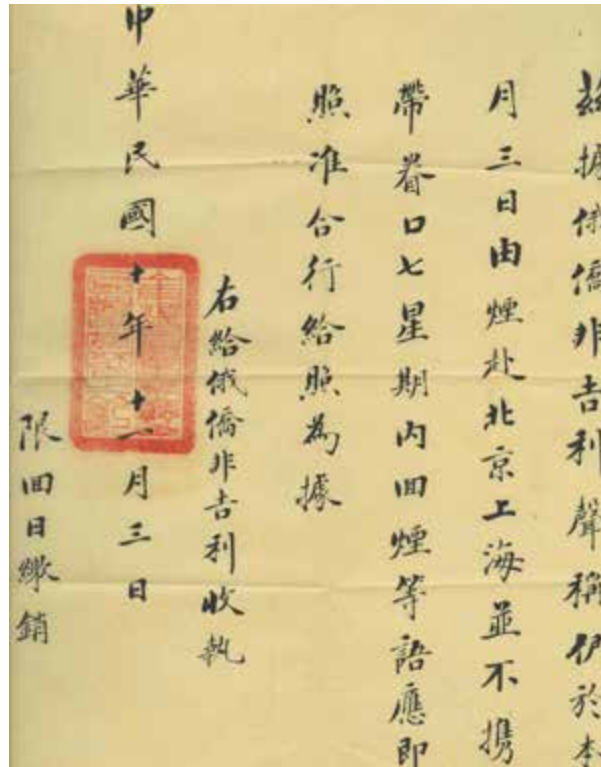 茲據俄僑非吉利聲稱伊於本
月三日由煙赴北京上海並不携
帶眷口七星期内回煙等語應即
照准合行給照為據
右給俄僑非吉利收執
中華民國十年十一月三日
限回日繳銷